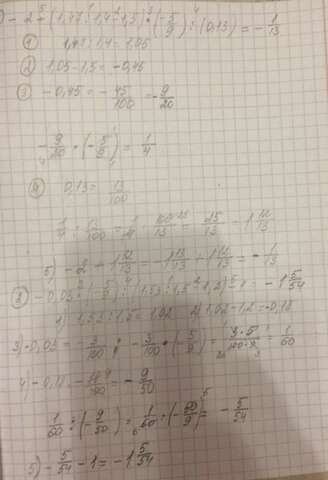 -2+(1,47:1,4-1,5)·(-5/9):(0,13)=-1/13
① 1,47:1,4=1,05
② 1,05-1,5=-0,45
③ -0,45=-45/100=-9/20
-9/20·(-5/9)=1/4
④ 0,13=13/100
1/4:13/100=1/4·100/13=25/13=1 12/13
5) -2+1 12/13=-1 13/13+1 12/13=-1/13
1) 1,53:1,5=1,02 2) 1,02-1,2=-0,18
3) -0,03=-3/100 -3/100·(-5/9)=3·5/100·9=1/60
4) -0,18=-18/100=-9/50
1/60:(-9/50)=1/60·(-50/9)=-5/54
5) -5/54-1=-1 5/54